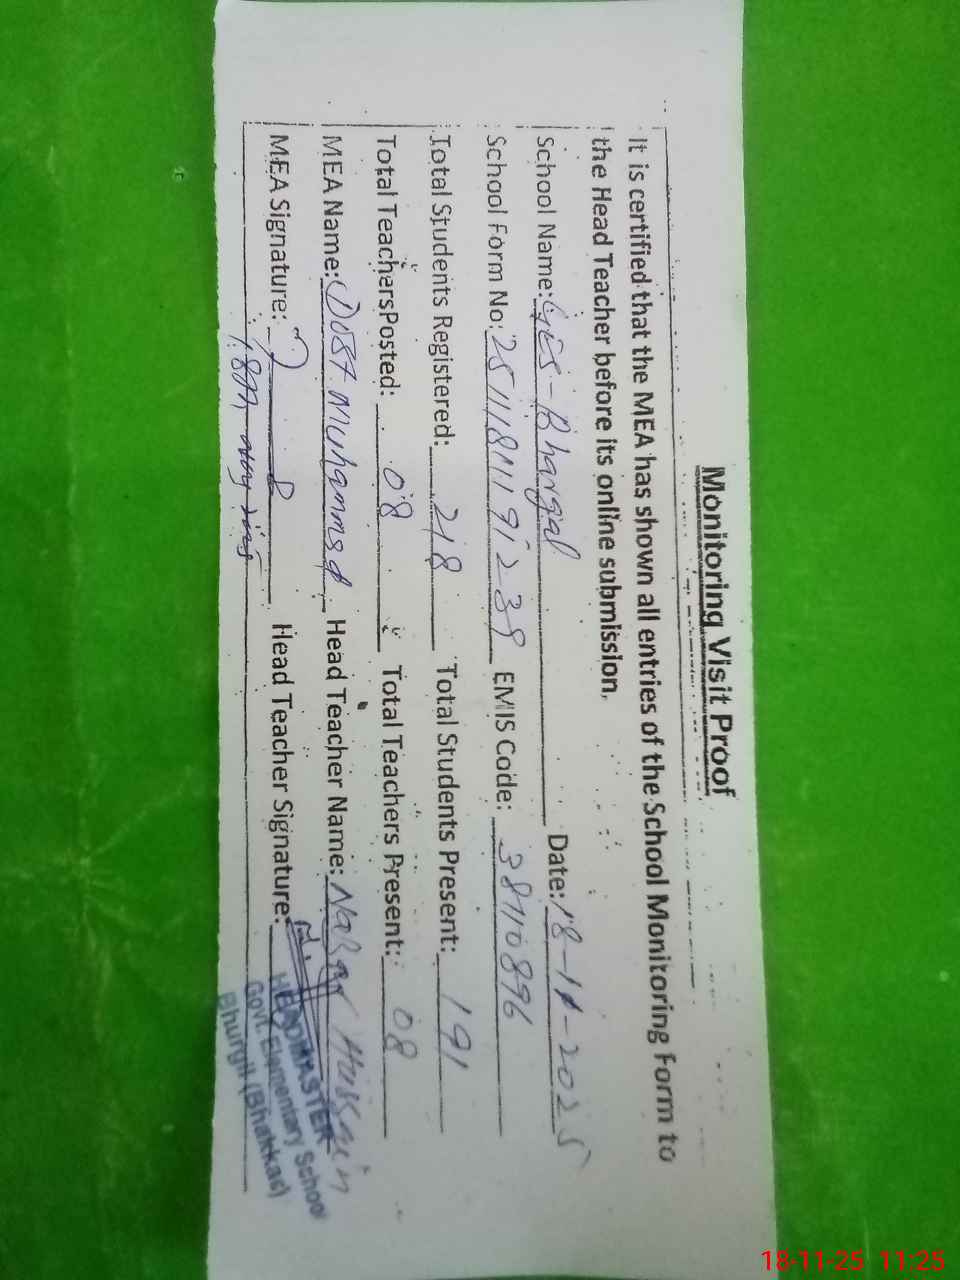 Monitoring Visit Proof
It is certified that the MEA has shown all entries of the School Monitoring Form to
the Head Teacher before its online submission.
School Name: GES-Bhargal Date: 18-11-2025
School Form No: EMIS Code: 38110896
Total Students Registered: 218 Total Students Present: 191
Total Teachers Posted: 08 Total Teachers Present: 08
MEA Name: Dost Muhammad Head Teacher Name: Hussain
MEA Signature: Head Teacher Signature:
HEADMASTER
Govt. Elementary School
(Bhakkar)
18-11-25 11:25